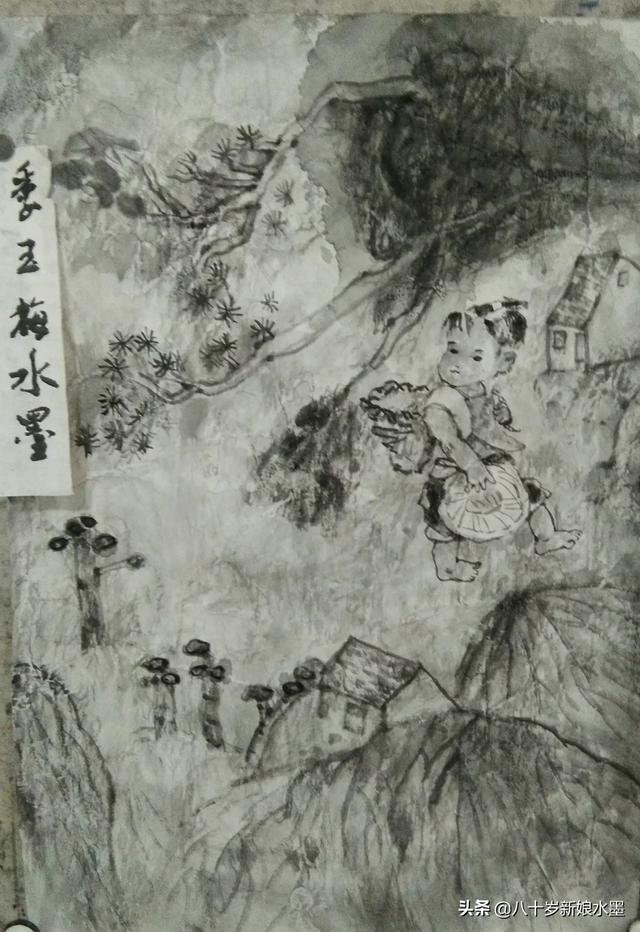 季王梅水墨
头条 @八十岁新娘水墨